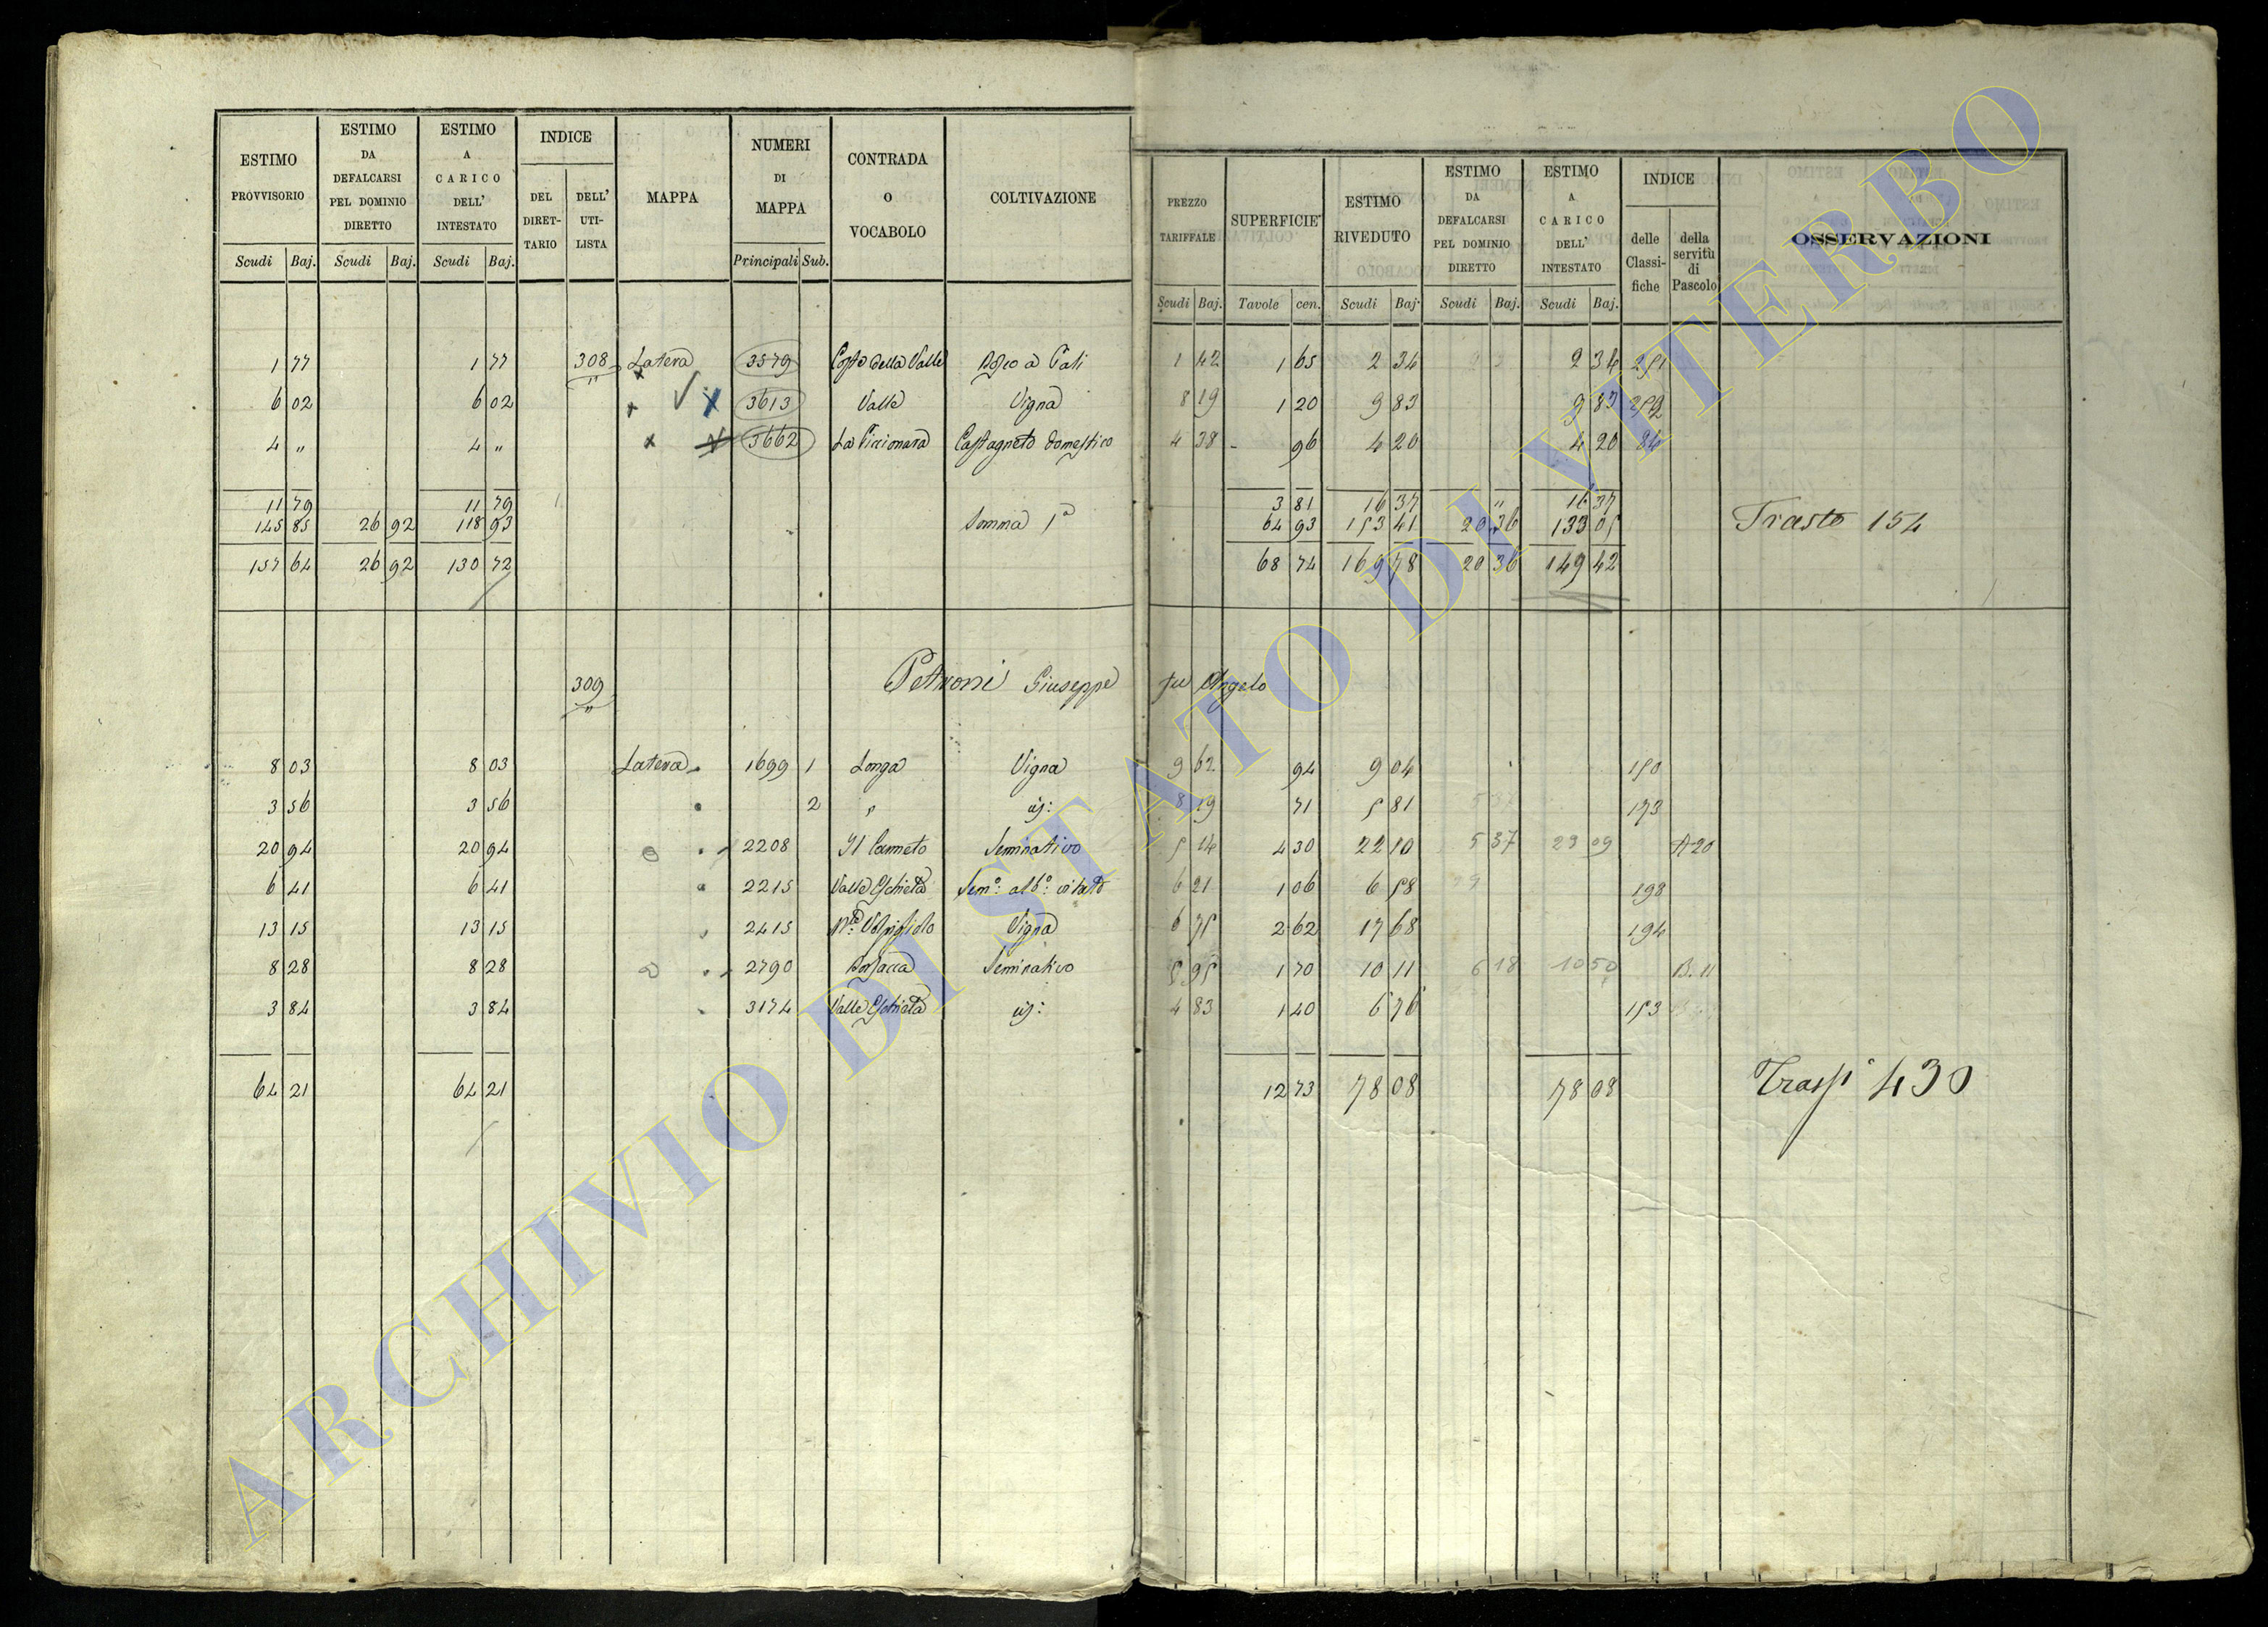 ESTIMO PROVVISORIO
ESTIMO DA DEFALCARSI PEL DOMINIO DIRETTO
ESTIMO A CARICO DELL' INTESTATO
INDICE
DEL DIRET-TARIO
DELL' UTI-LISTA
MAPPA
NUMERI DI MAPPA
CONTRADA O VOCABOLO
COLTIVAZIONE
PREZZO TARIFFALE
SUPERFICIE
ESTIMO RIVEDUTO
ESTIMO DA DEFALCARSI PEL DOMINIO DIRETTO
ESTIMO A CARICO DELL' INTESTATO
INDICE
delle Classi-fiche
della servitù di Pascolo
OSSERVAZIONI
Scudi Baj. Scudi Baj. Scudi Baj. Principali Sub. Scudi Baj. Tavole cen. Scudi Baj. Scudi Baj. Scudi Baj.
1 77 1 77 308 Latera 3579 Costa della Valle Bosco a Pali 1 42 1 65 2 34 2 34 251
6 02 6 02 3613 Valle Vigna 8 19 1 20 9 83 9 83 252
4 " 4 " 3662 La Piccionara Castagneto domestico 4 38 - 96 4 20 4 20 84
11 79 11 79 3 81 16 37 " 16 37
145 85 26 92 118 93 Somma 1a 64 93 153 41 20 36 133 05 Trasto 154
157 64 26 92 130 72 68 74 169 78 20 36 149 42
309 Petroni Giuseppe fu Angelo
8 03 8 03 Latera 1699 1 Longa Vigna 9 62 94 9 04 150
3 56 3 56 2 " id: 8 19 71 5 81 173
20 94 20 94 2208 Il Canneto Seminativo 5 14 4 30 22 10 5 37 23 09 A 20
6 41 6 41 2215 Valle Schieta Semo: albo: vitato 6 21 1 06 6 58 198
13 15 13 15 2415 Vigna 6 75 2 62 17 68 194
8 28 8 28 2790 Seminativo 5 95 1 70 10 11 6 18 10 50 B. 11
3 84 3 84 3174 Valle Schieta id: 4 83 1 40 6 76 153
64 21 64 21 12 73 78 08 78 08 430
ARCHIVIO DI STATO DI VITERBO